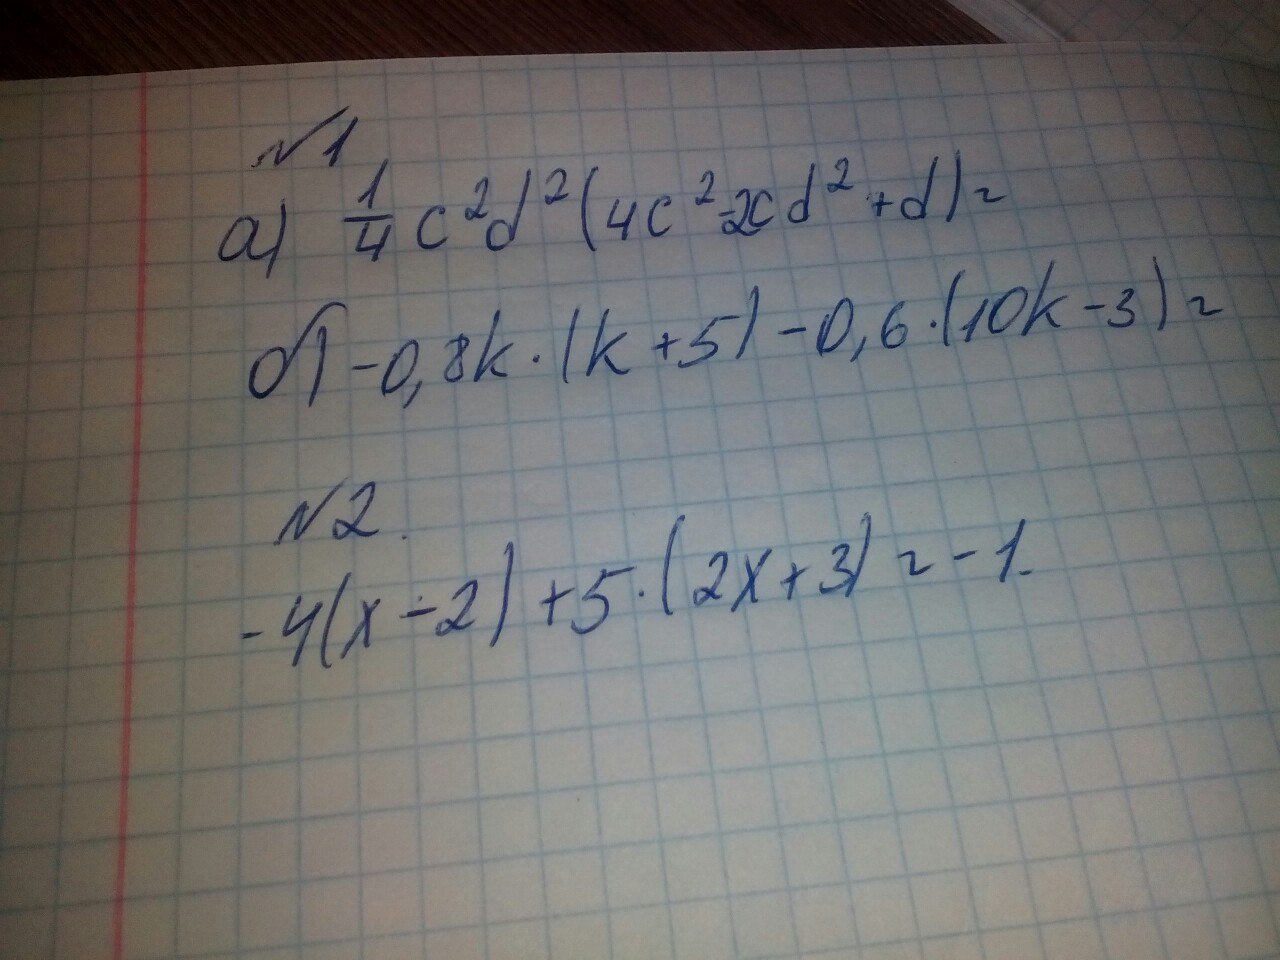 №1
а) 1/4 c²d²(4c²-2cd²+d)=
б) -0,8k·(k+5)-0,6·(10k-3)=
№2.
-4(x-2)+5·(2x+3)=-1.